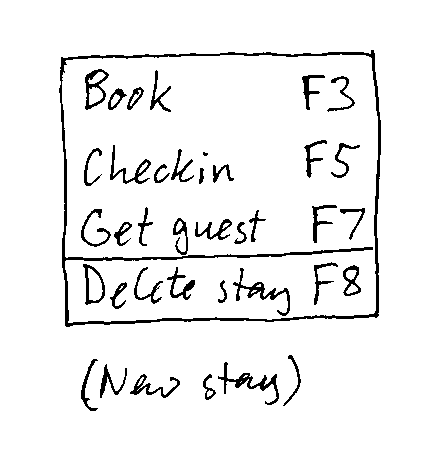 Book F3
Checkin F5
Get guest F7
Delete stay F8
(New stay)